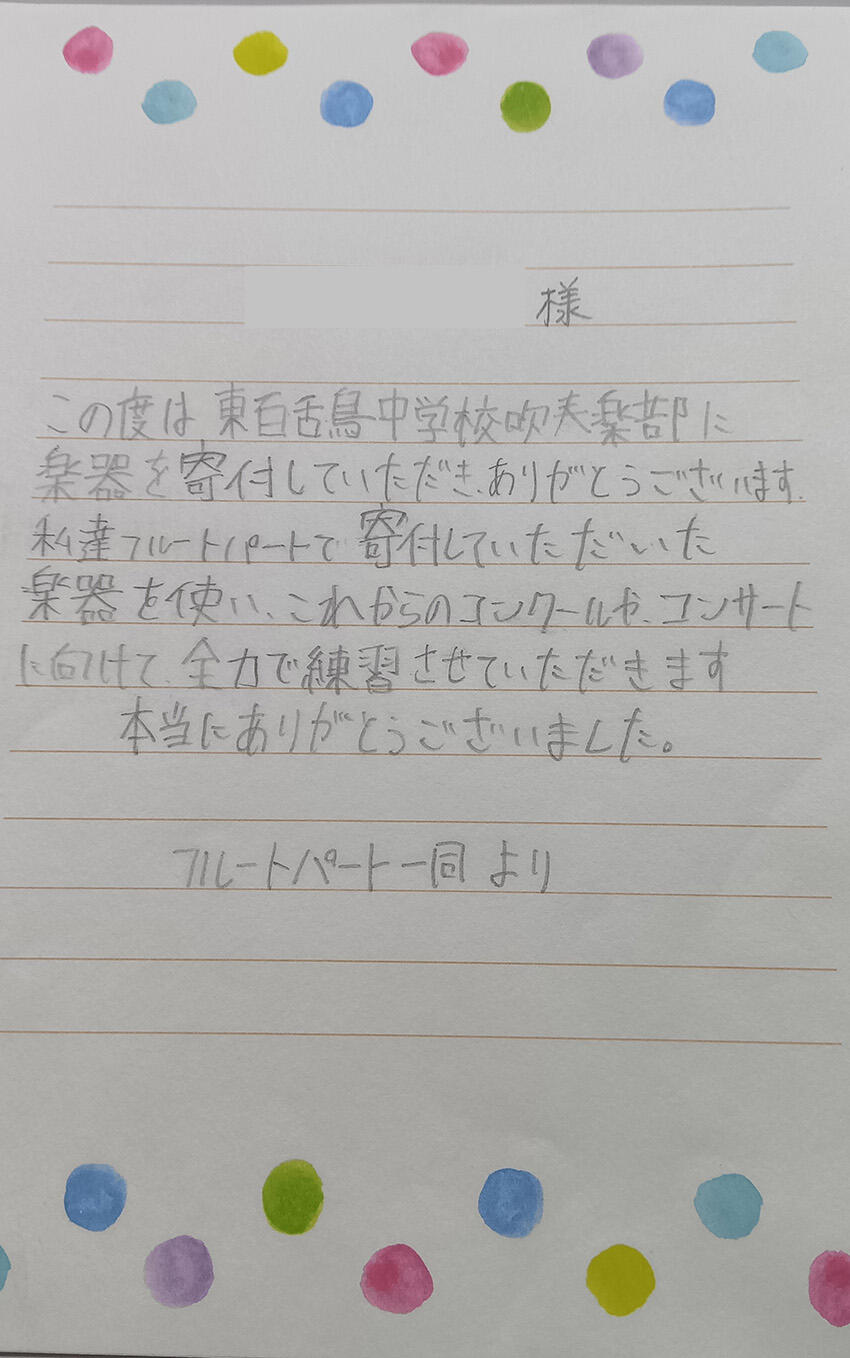 様
この度は東百舌鳥中学校吹奏楽部に
楽器を寄付していただき、ありがとうございます。
私達フルートパートで寄付していただいた
楽器を使い、これからのコンクールや、コンサート
に向けて、全力で練習させていただきます
本当にありがとうございました。
フルートパート一同 より